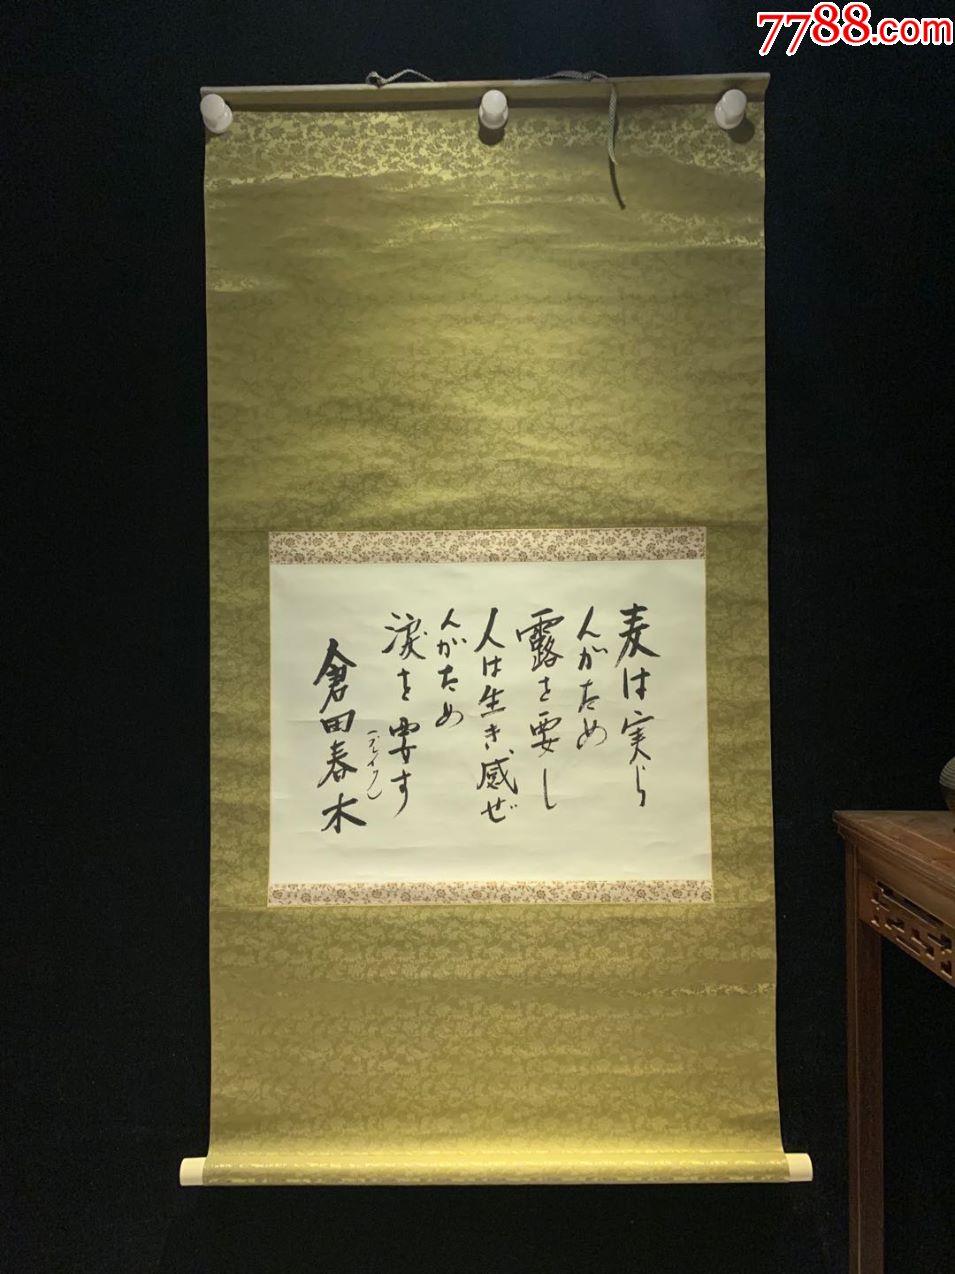 7788.com
麦は実ら
んがため
露を要し
人は生き感ぜ
んがため
涙を要す
(ブレイク)
倉田春木